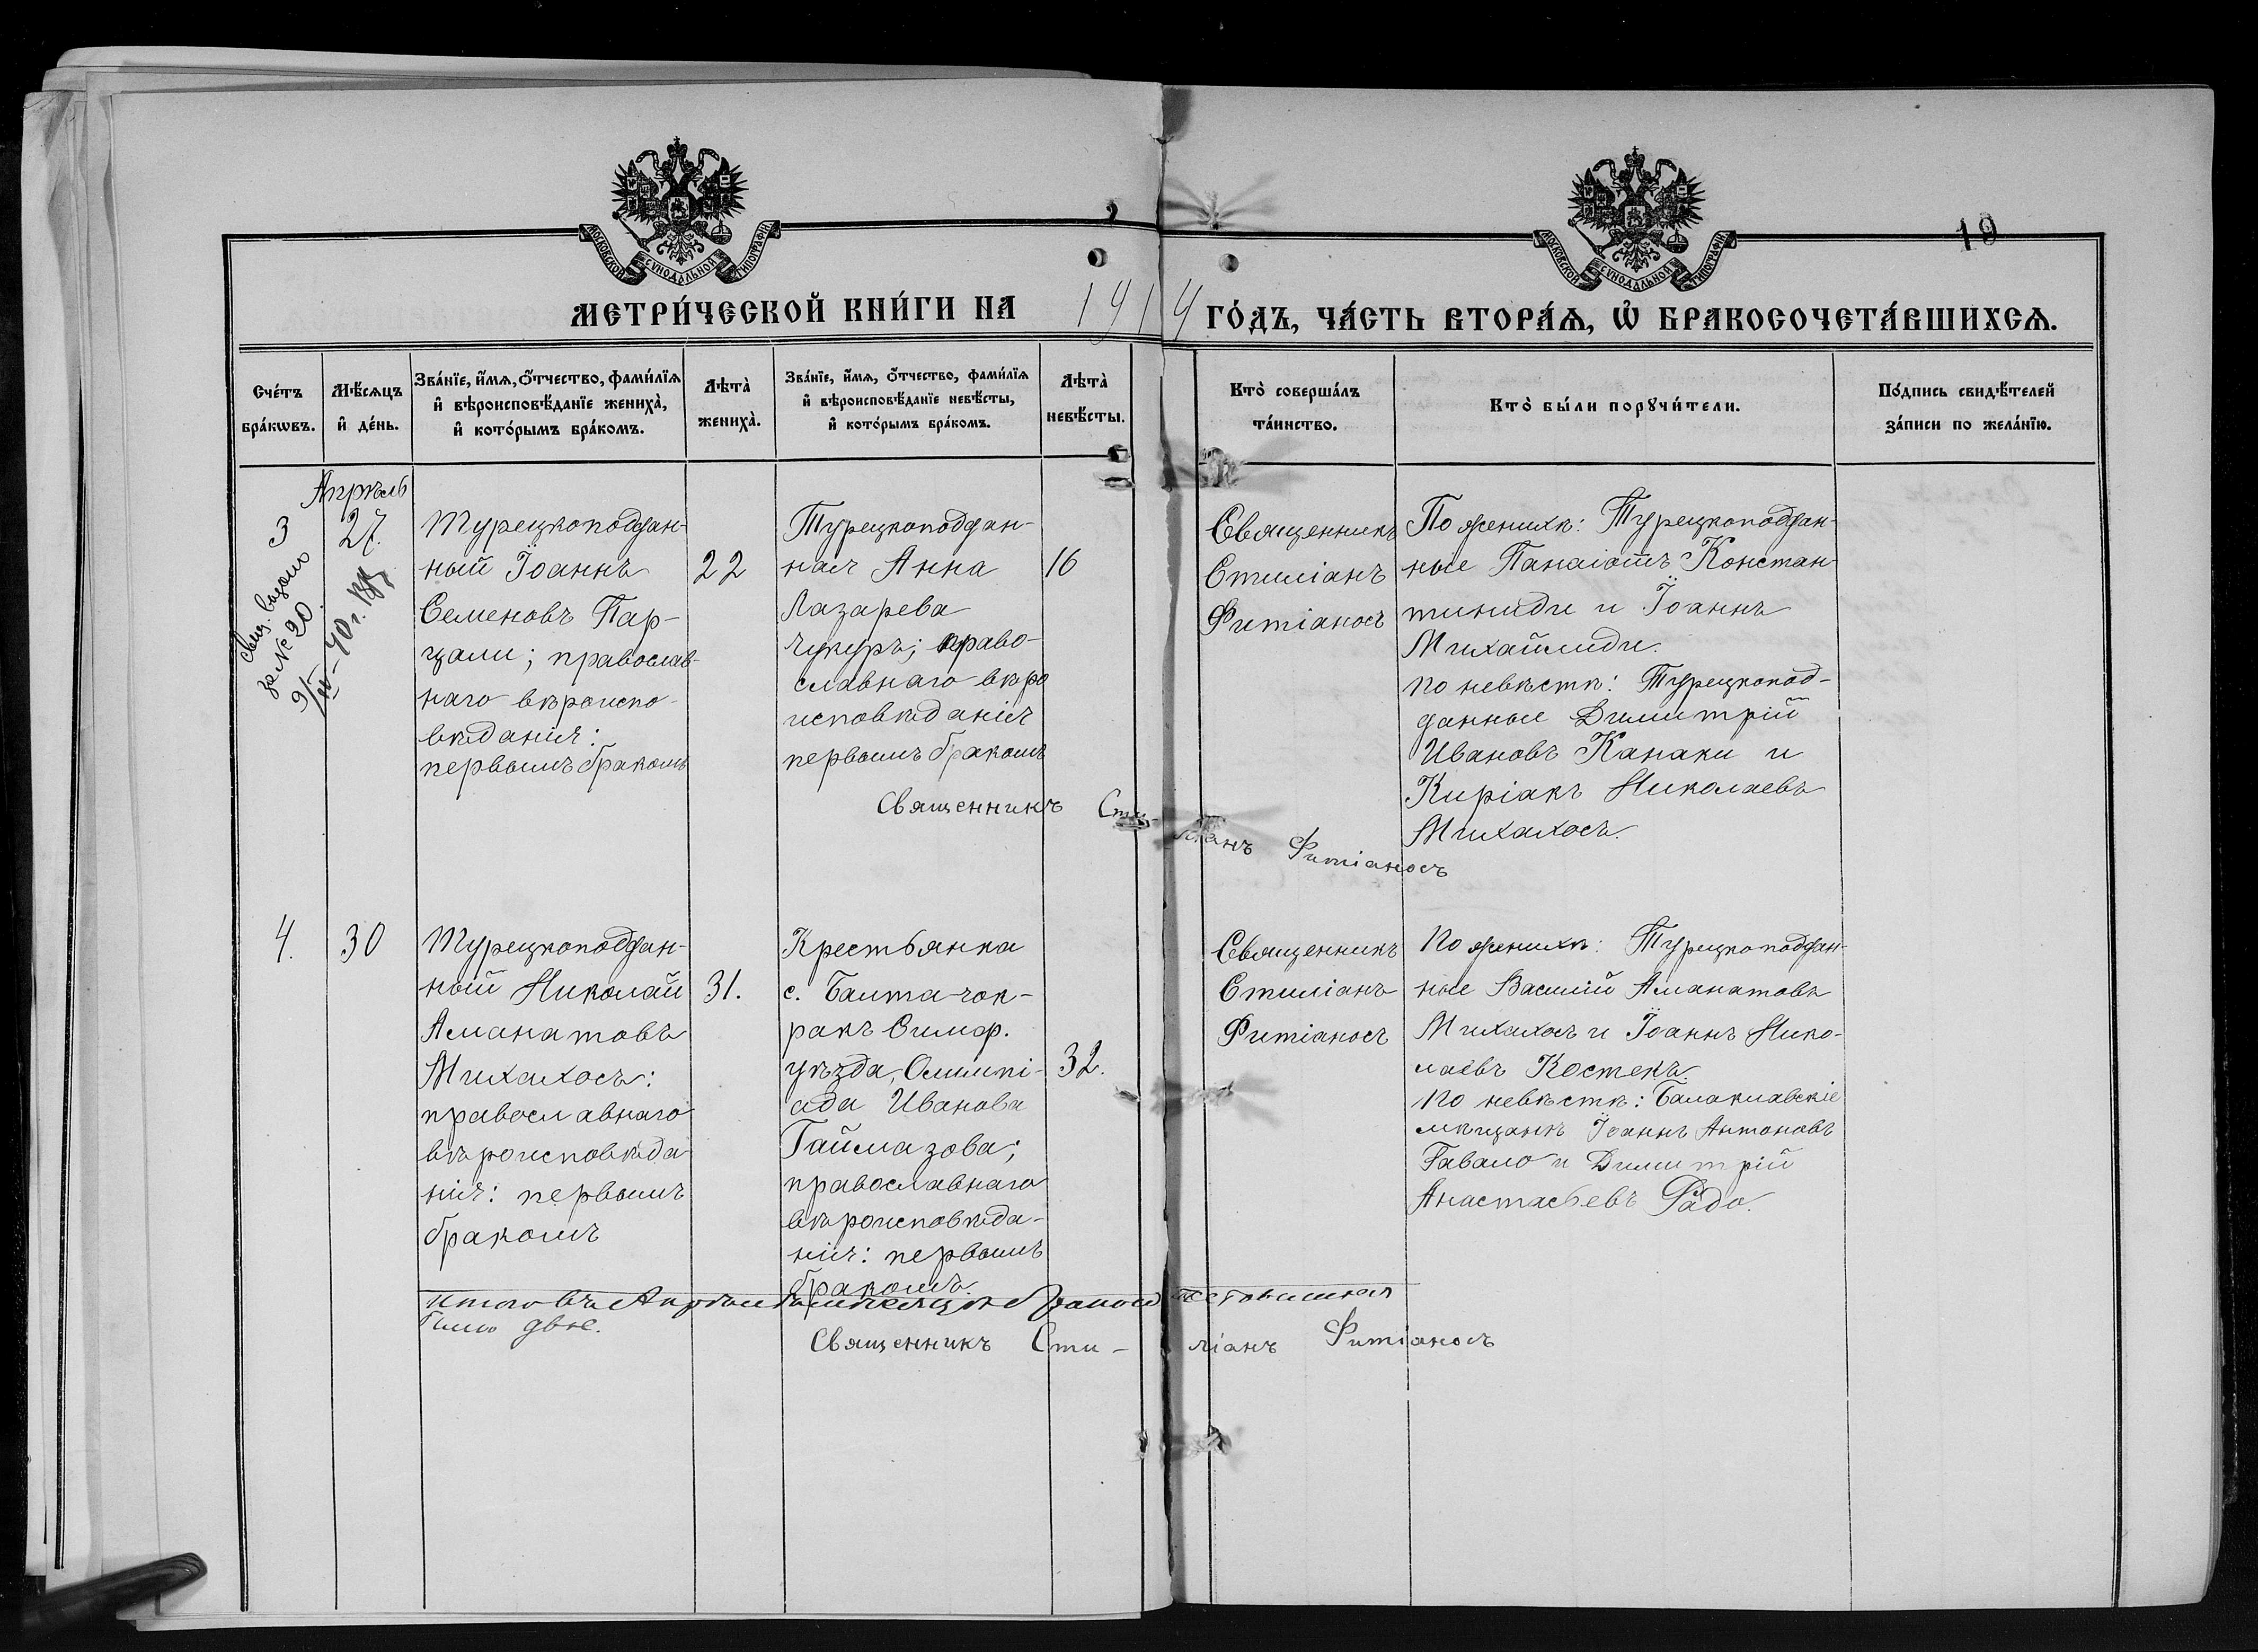 МОСКОВСКОЙ СѴНОДАЛЬНОЙ ТИПОГРАФІИ
МОСКОВСКОЙ СѴНОДАЛЬНОЙ ТИПОГРАФІИ
19
МЕТРИ́ЧЕСКОЙ КНИ́ГИ НА 1914 ГО́ДЪ, ЧА́СТЬ ВТОРА́Ѧ, Ѡ҆ БРАКОСОЧЕТА́ВШИХСѦ.
Сче́тъ
бра́кѡвъ.
Мѣ́сѧцъ
и҆ де́нь.
Зва́нїе, и҆́мѧ, ѻ҆́тчество, фами́лїѧ
и҆ вѣроисповѣ́данїе жениха̀,
и҆ кото́рымъ бра́комъ.
Лѣта̀
жениха̀.
Зва́нїе, и҆́мѧ, ѻ҆́тчество, фами́лїѧ
и҆ вѣроисповѣ́данїе невѣ́сты,
и҆ кото́рымъ бра́комъ.
Лѣта̀
невѣ́сты.
Кто̀ соверша́лъ
та́инство.
Кто̀ бы́ли порꙋчи́тели.
По́дпись свидѣ́телей
за́писи по жела́нїю.
Апрѣль
3
27.
свид. выдано
за № 20
9/III-40 г.
Турецкоподдан-
ный Іоаннъ
Семеновъ Пар-
цали; православ-
наго вѣроиспо-
вѣданія:
первымъ бракомъ
22
Турецкоподдан-
ная Анна
Лазарева
Чукуръ; право-
славнаго вѣро
исповѣданія
первымъ бракомъ
16
Священникъ
Стиліанъ
Фитіаносъ
По женихѣ: Турецкоподдан-
ные Панаіотъ Констан
тиниди и Іоаннъ
Михайлиди.
по невѣстѣ: Турецкопод-
данные Димитрій
Ивановъ Канаки и
Киріакъ Николаевъ
Михахосъ.
Священникъ Сти-
ліанъ Фитіаносъ
4.
30
Турецкоподдан-
ный Николай
Аманатовъ
Михахосъ:
православнаго
вѣроисповѣда
нія: первымъ
бракомъ
31.
Крестьянка
с. Балта-чок-
ракъ Симф.
уѣзда, Олимпі-
ада Иванова
Таймазова;
православнаго
вѣроисповѣда-
нія: первымъ
бракомъ.
32.
Священникъ
Стиліанъ
Фитіаносъ
По женихѣ: Турецкоподдан-
ные Василій Аманатовъ
Михахосъ и Іоаннъ Нико-
лаевъ Костекъ.
по невѣстѣ: Балаклавскіе
мѣщанѣ Іоаннъ Антоновъ
Гавало и Димитрій
Анастасьевъ Радо.
Итого въ Апрѣлѣ мѣсяцѣ
было двѣ.
Священникъ Сти-
ліанъ Фитіаносъ